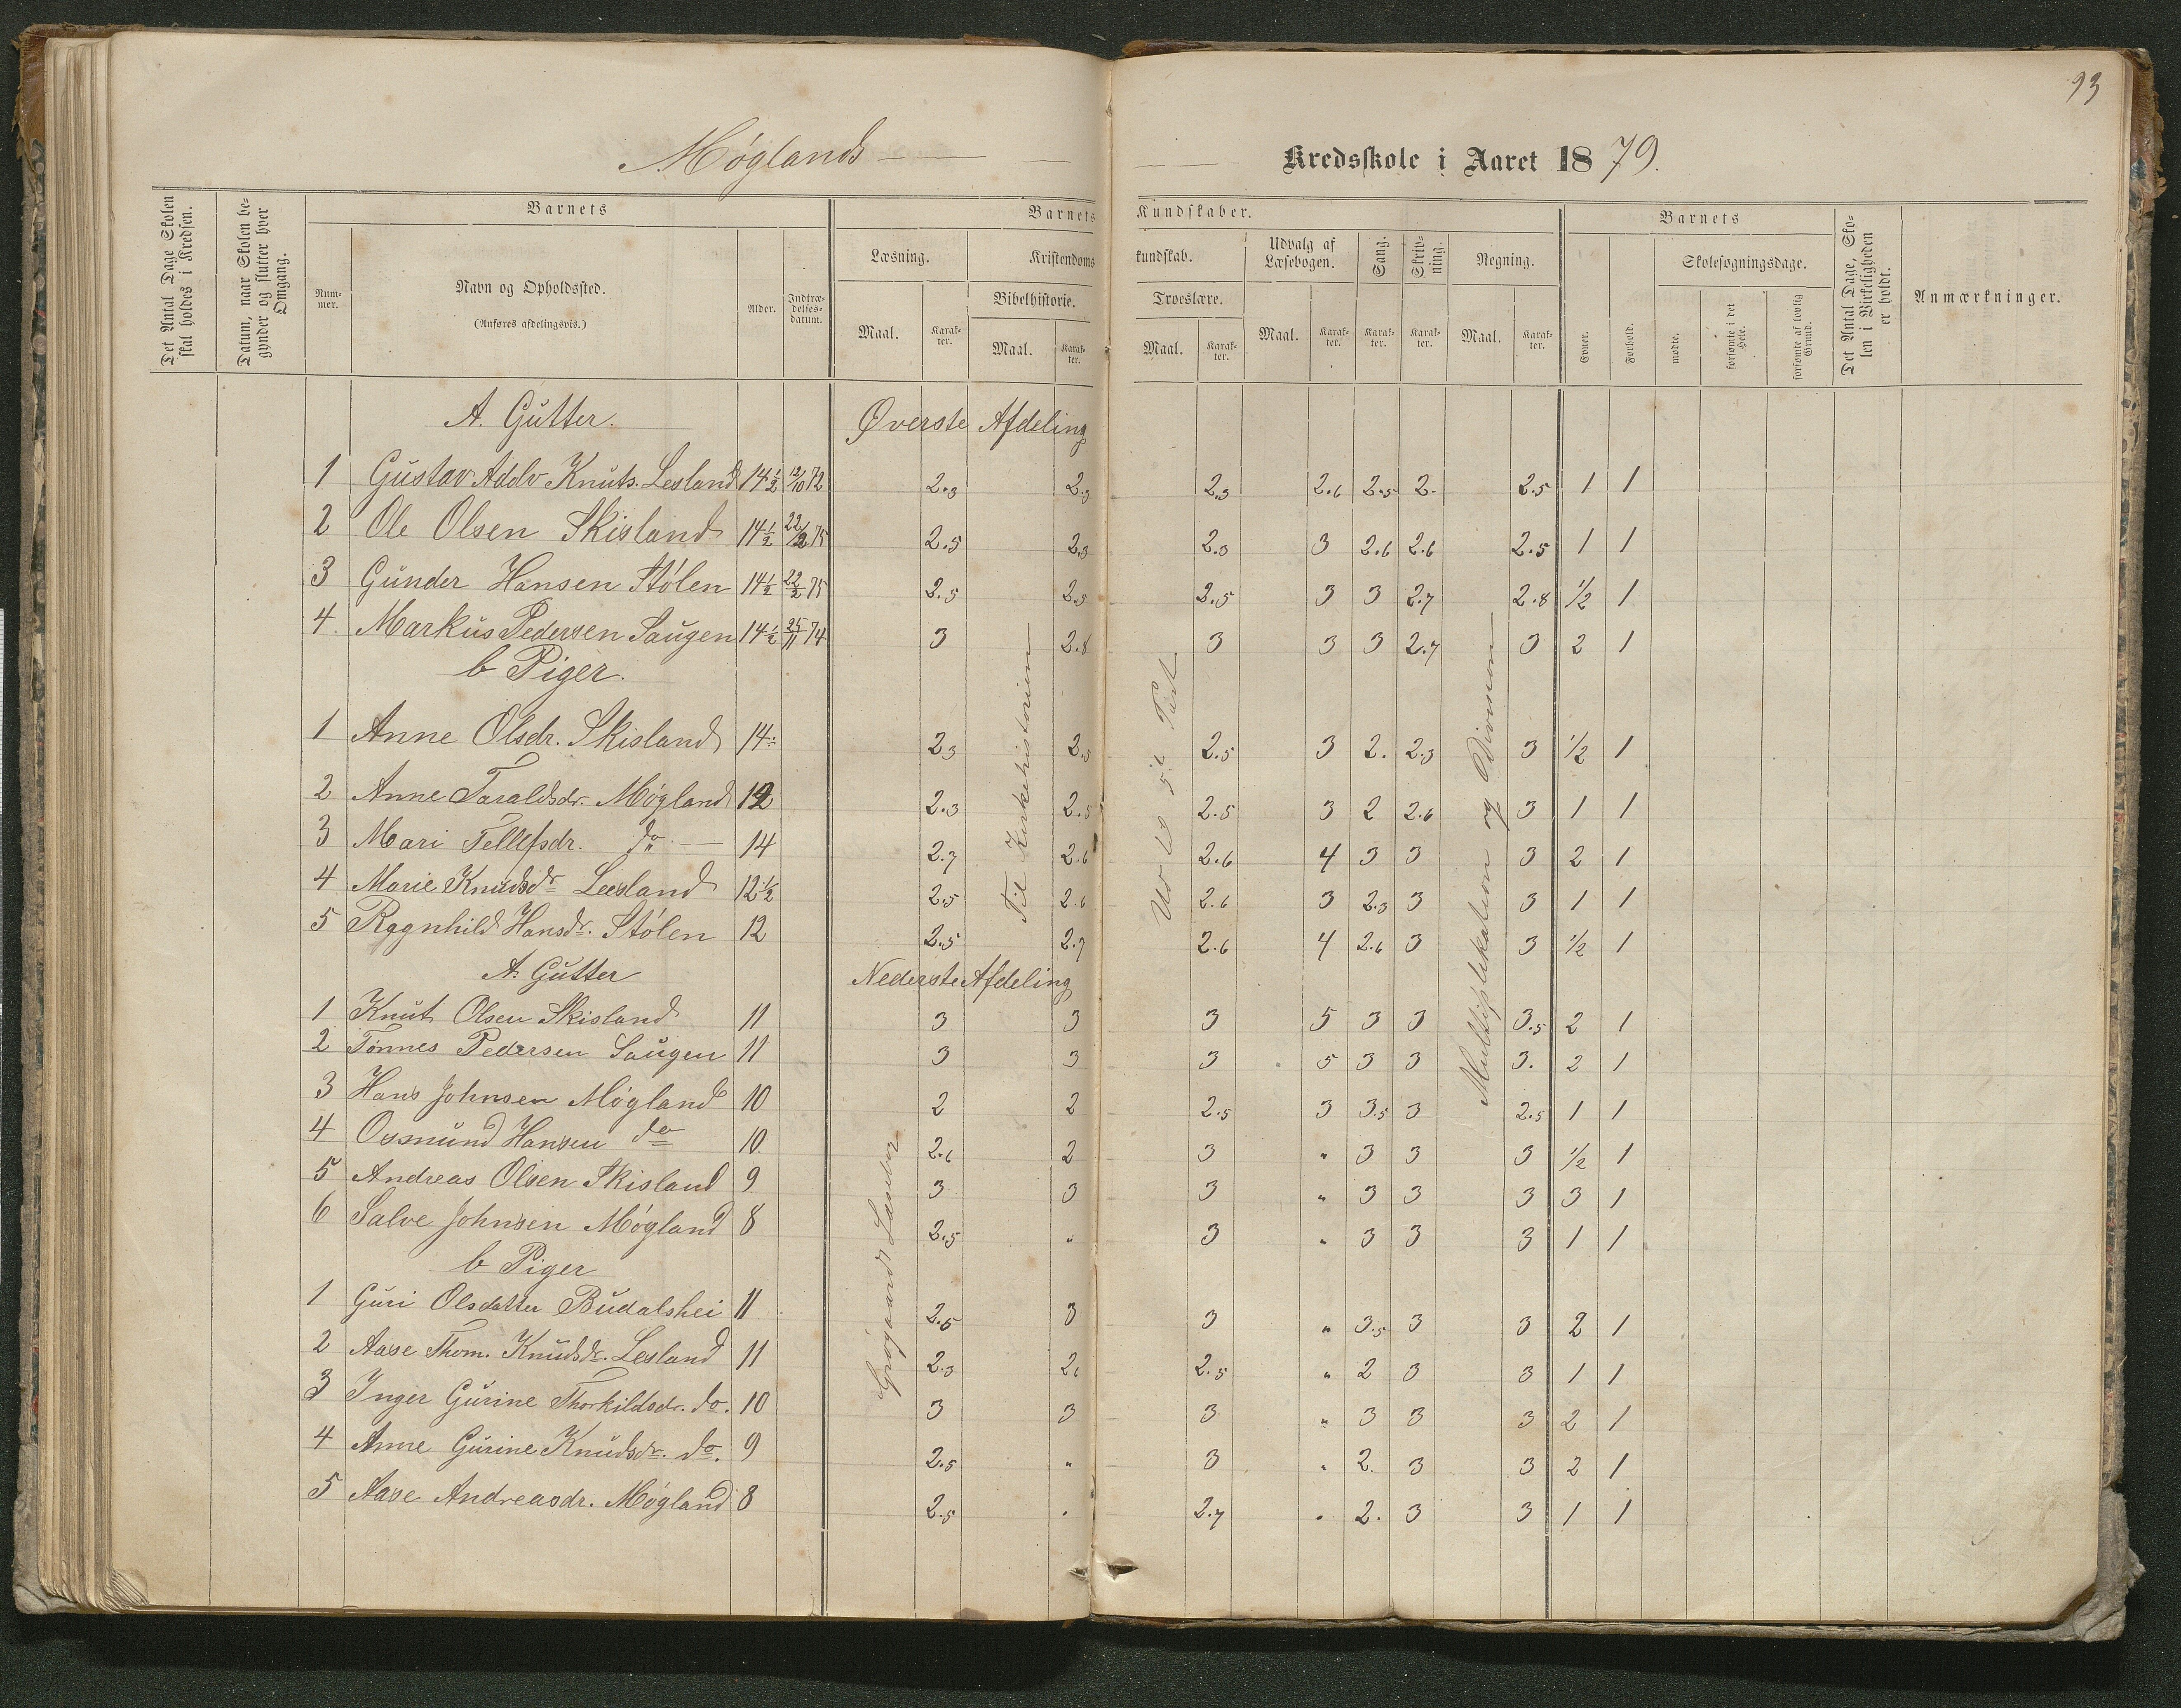 93
Møglands Kredsskole i Aaret 1879.
Det Antal Dage Skolen skal holdes i Kredsen.
Datum, naar Skolen begynder og slutter hver Omgang.
Barnets
Nummer.
Navn og Opholdssted.
(Anføres afdelingsvis.)
Alder.
Indtrædelsesdatum.
Barnets Kundskaber.
Læsning.
Maal.
Karakter.
Kristendomskundskab.
Bibelhistorie.
Maal.
Karakter.
Troeslære.
Maal.
Karakter.
Udvalg af Læsebogen.
Maal.
Karakter.
Sang.
Karakter.
Skrivning.
Karakter.
Regning.
Maal.
Karakter.
Barnets
Evner.
Forhold.
Skolesøgningsdage.
mødte.
forsømte i det Hele.
forsømte af lovlig Grund.
Det Antal Dage, Skolen i Virkeligheden er holdt.
Anmærkninger.
A. Gutter. Øverste Afdeling
1 Gustav Adolv Knuts. Lesland 14 1/2 12/10 72 2.3 2.3 2.3 2.6 2.5 2. 2.5 1 1
2 Ole Olsen Skisland 14 1/2 22/2 75 2.5 2.3 2.3 3 2.6 2.6 2.5 1 1
3 Gunder Hansen Stølen 14 1/2 22/2 75 2.5 2.5 2.5 3 3 2.7 2.8 1/2 1
4. Markus Pedersen Saugen 14 1/2 25/11 74 3 2.8 3 3 3 2.7 3 2 1
b Piger.
1 Anne Olsdr. Skisland 14 2.3 2.5 2.5 3 2. 2.3 3 1/2 1
2 Anne Taraldsdr. Møgland 12 2.3 2.5 2.5 3 2 2.6 3 1 1
3 Mari Tellefsdr. do — 14 2.7 2.6 2.6 4 3 3 3 2 1
4 Marie Knudsdr Leesland 12 1/2 2.5 2.6 2.6 3 2.3 3 3 1 1
5 Ragnhild Hansdr. Stølen 12 2.5 2.7 2.6 4 2.6 3 3 1/2 1
A. Gutter Nederste Afdeling
1 Knut Olsen Skisland 11 3 3 3 5 3 3 3.5 2 1
2 Tønnes Pedersen Saugen 11 3 3 3 5 3 3 3. 2 1
3 Hans Johnsen Møgland 10 2 2 2.5 3 3.5 3 2.5 1 1
4 Osmund Hansen do 10. 2.6 2 3 " 3 3 3 1/2 1
5 Andreas Olsen Skisland 9 3 3 3 " 3 3 3 3 1
6 Salve Johnsen Møgland 8 2.5 " 3 " 3 3 3 1 1
b Piger
1 Guri Olsdatter Budalshei 11 2.5 3 3 " 3.5 3 3 2 1
2 Aase Thom. Knudsdr. Lesland 11 2.3 2. 2.5 " 2 3 3 1 1
3 Inger Gurine Thorkildsdr. do. 10 3 3 3 " 3 3 3 2 1
4 Anne Gurine Knudsdr. do. 9 2.5 " 3 " 2. 3 3 2 1
5 Aase Andreasdr. Møgland 8 2.5 " 2.7 " 2. 3 3 1 1
Til Kirkehistorien
til 5te Part
Multiplikation og Division